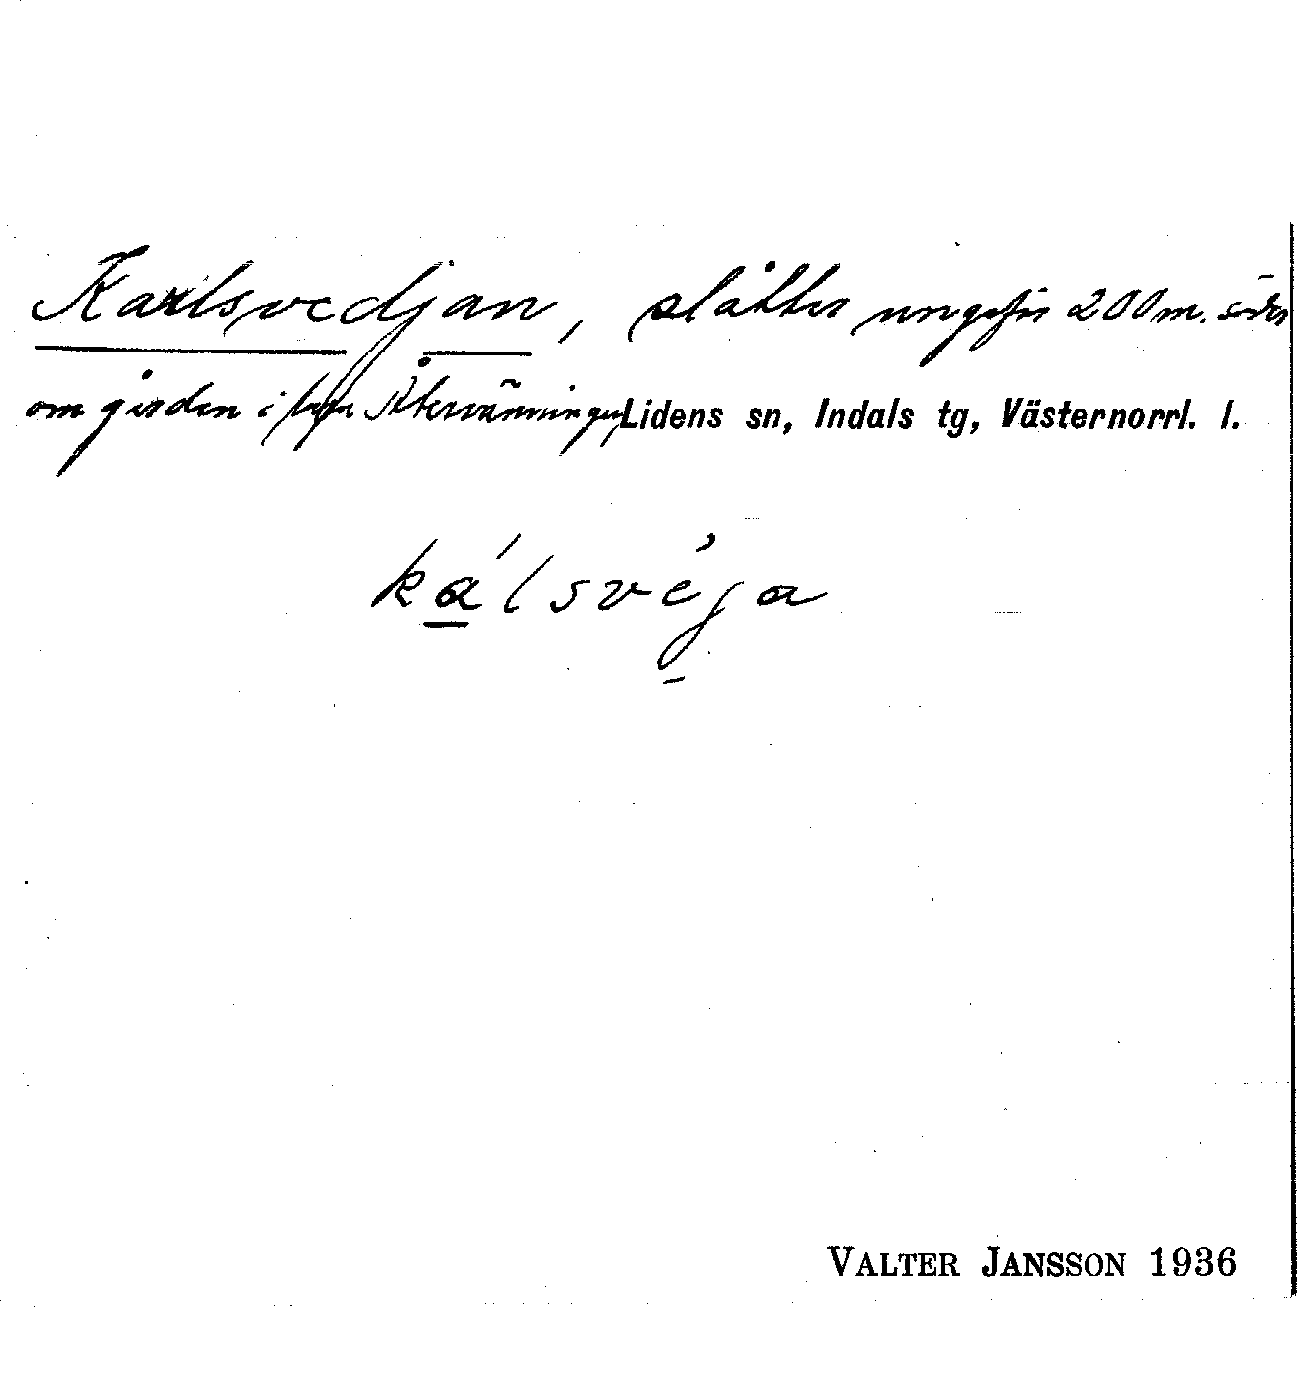 Karlsvedjan, slåtter ungefär 200 m. söder
om gården i byn Återvänningen, Lidens sn, Indals tg, Västernorrl. l.
ká̱lsvéja
VALTER JANSSON 1936